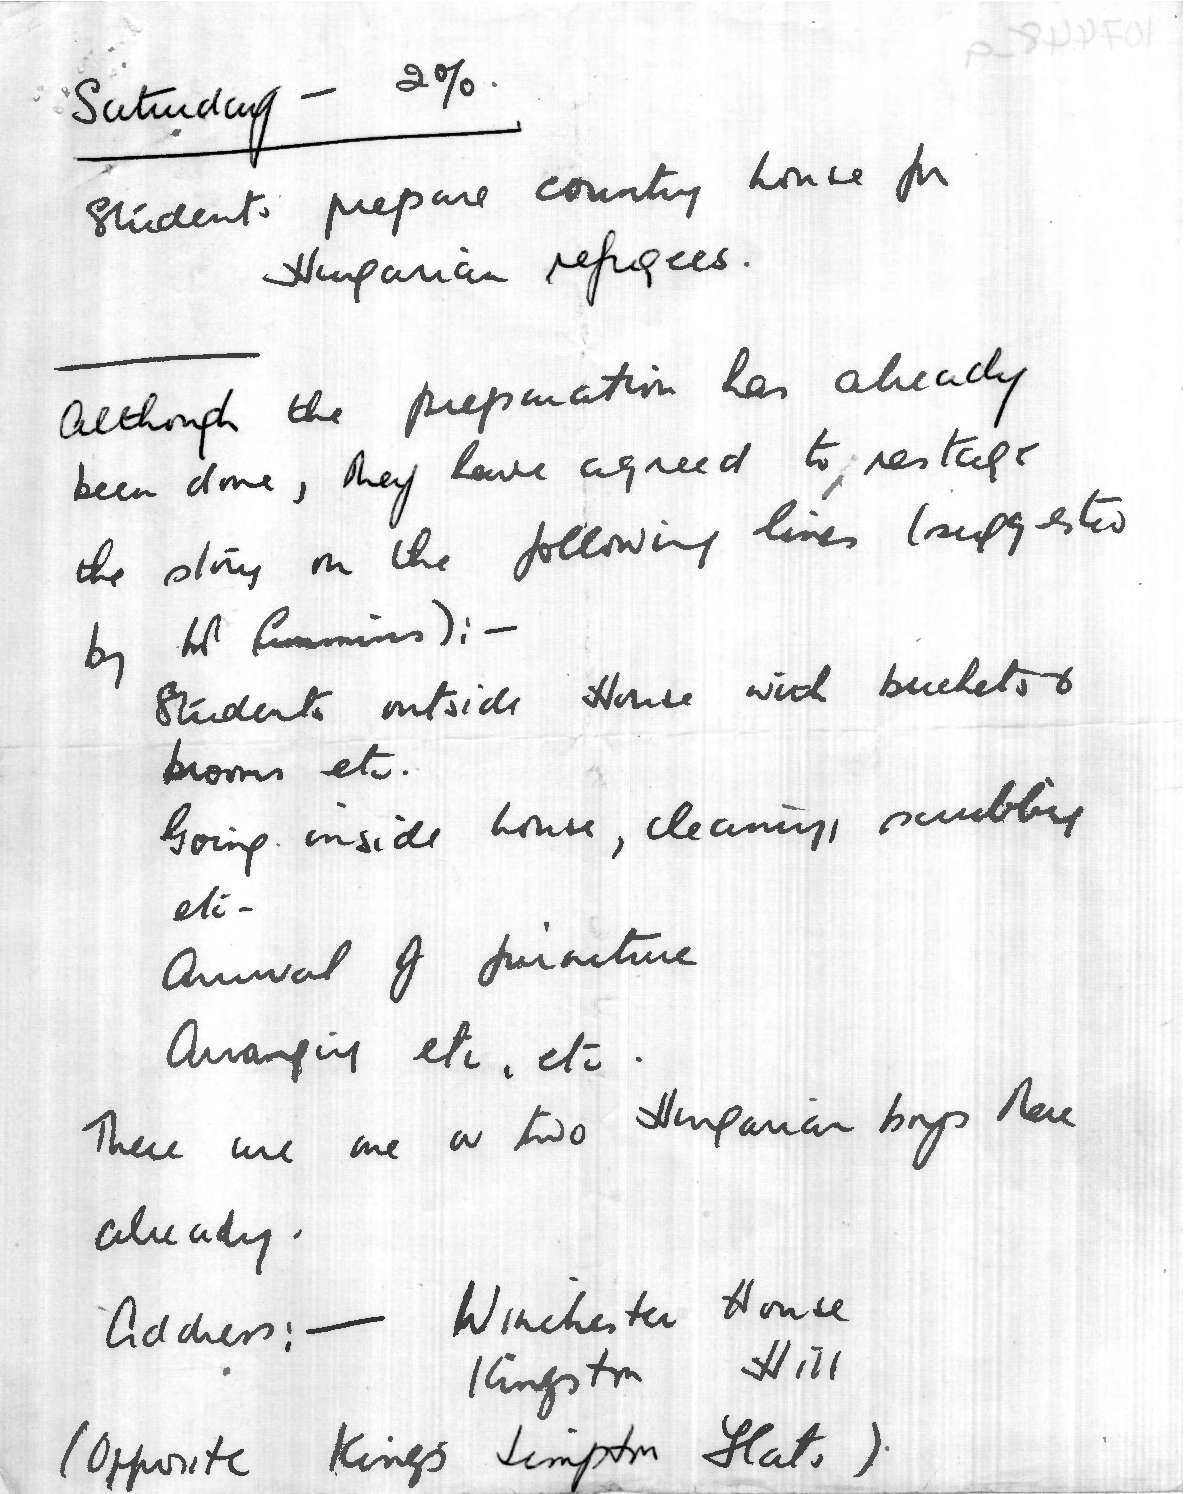 Saturday - 2%.
Students prepare country house for
Hungarian refugees.
Although the preparation has already
been done, they have agreed to restage
the story on the following lines (suggested
by Mr Cummins):-
Students outside House with buckets &
brooms etc.
Going inside house, cleaning, scrubbing
etc-
Arrival of furniture
Arranging etc, etc.
There are one or two Hungarian boys there
already.
Address:- Winchester House
Kingston Hill
(Opposite Kings Flats).